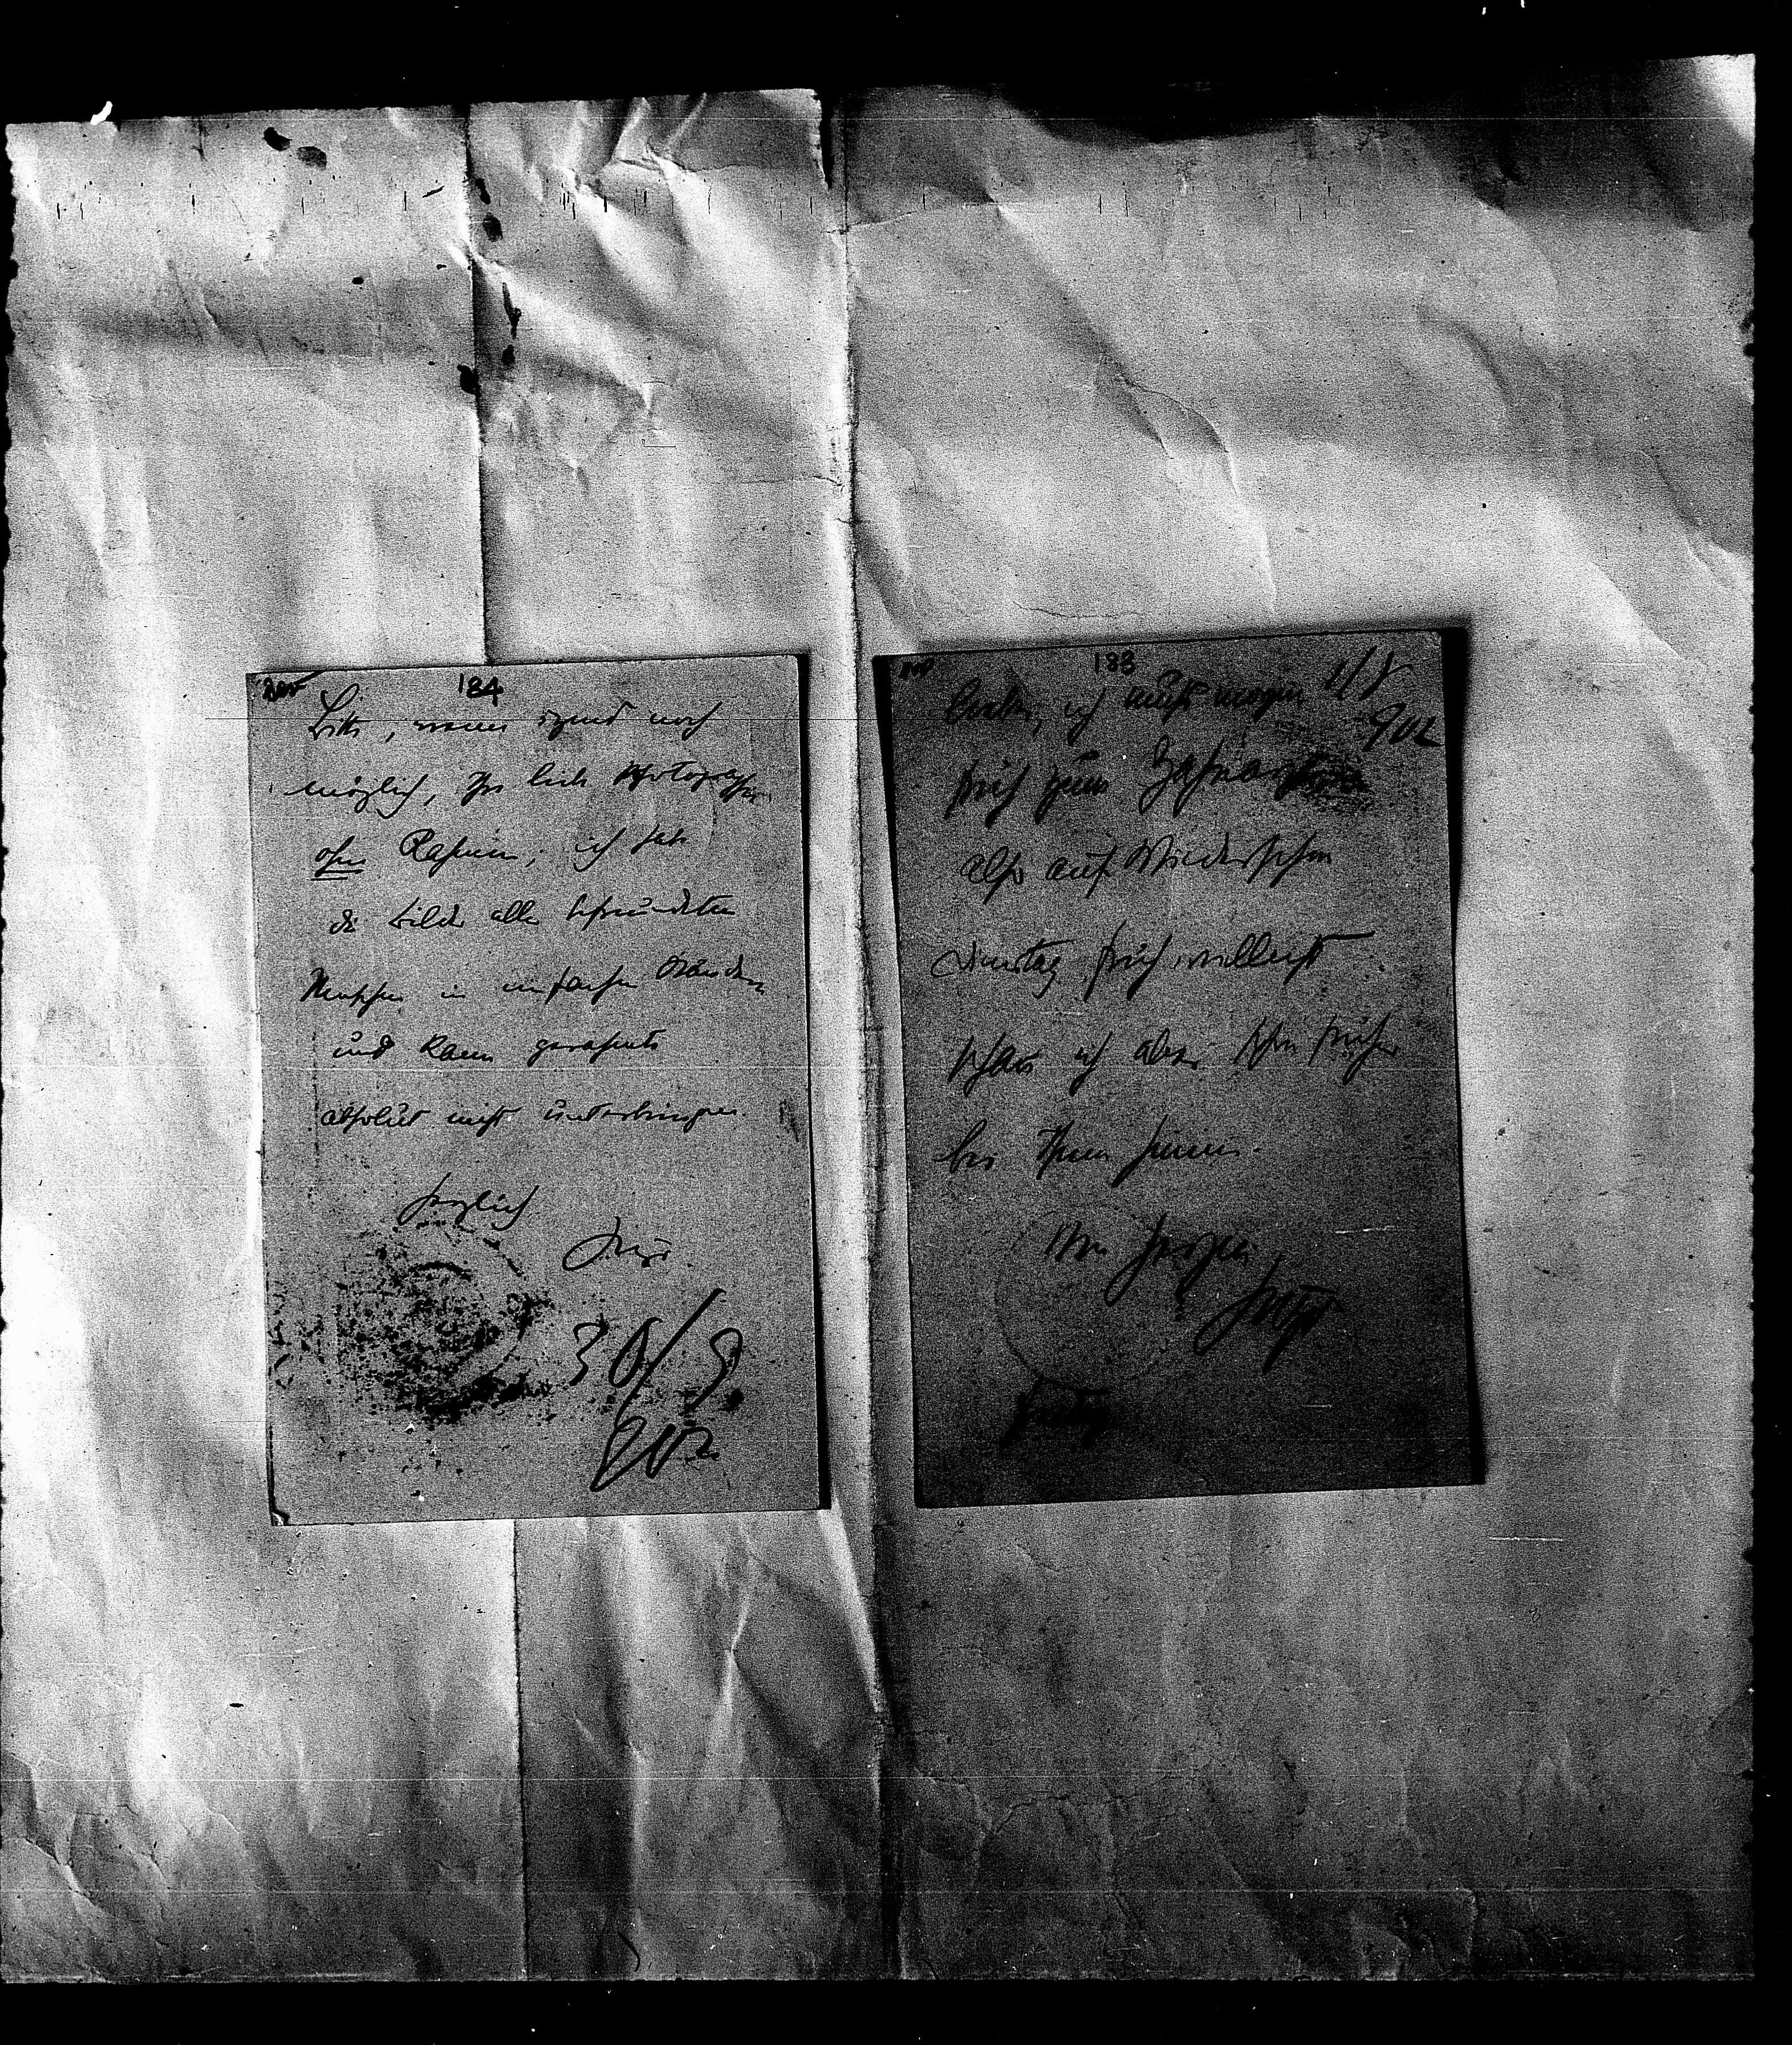 184
Bitte, wenn irgend noch
möglich, Ihre liebe Photographie
ohne Rahmen; ich habe
die Bilder aller befreundeten
Menschen in einfachen Ständern
und kann gerahmte
absolut nicht unterbringen.
Herzlich
Hugo.
30/9
902
183
1/8
902
Lieber, ich muß morgen
früh zum Zahnarzt
also auf Wiedersehen
Dienstag früh vielleicht
schau ich aber schon früher
bei Ihnen herein.
Von Herzen,
Hugo